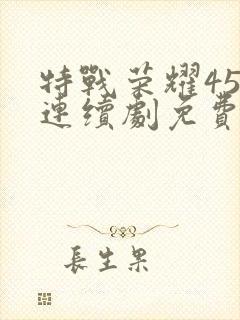 特戰荣耀45
連續劇免費
長生果